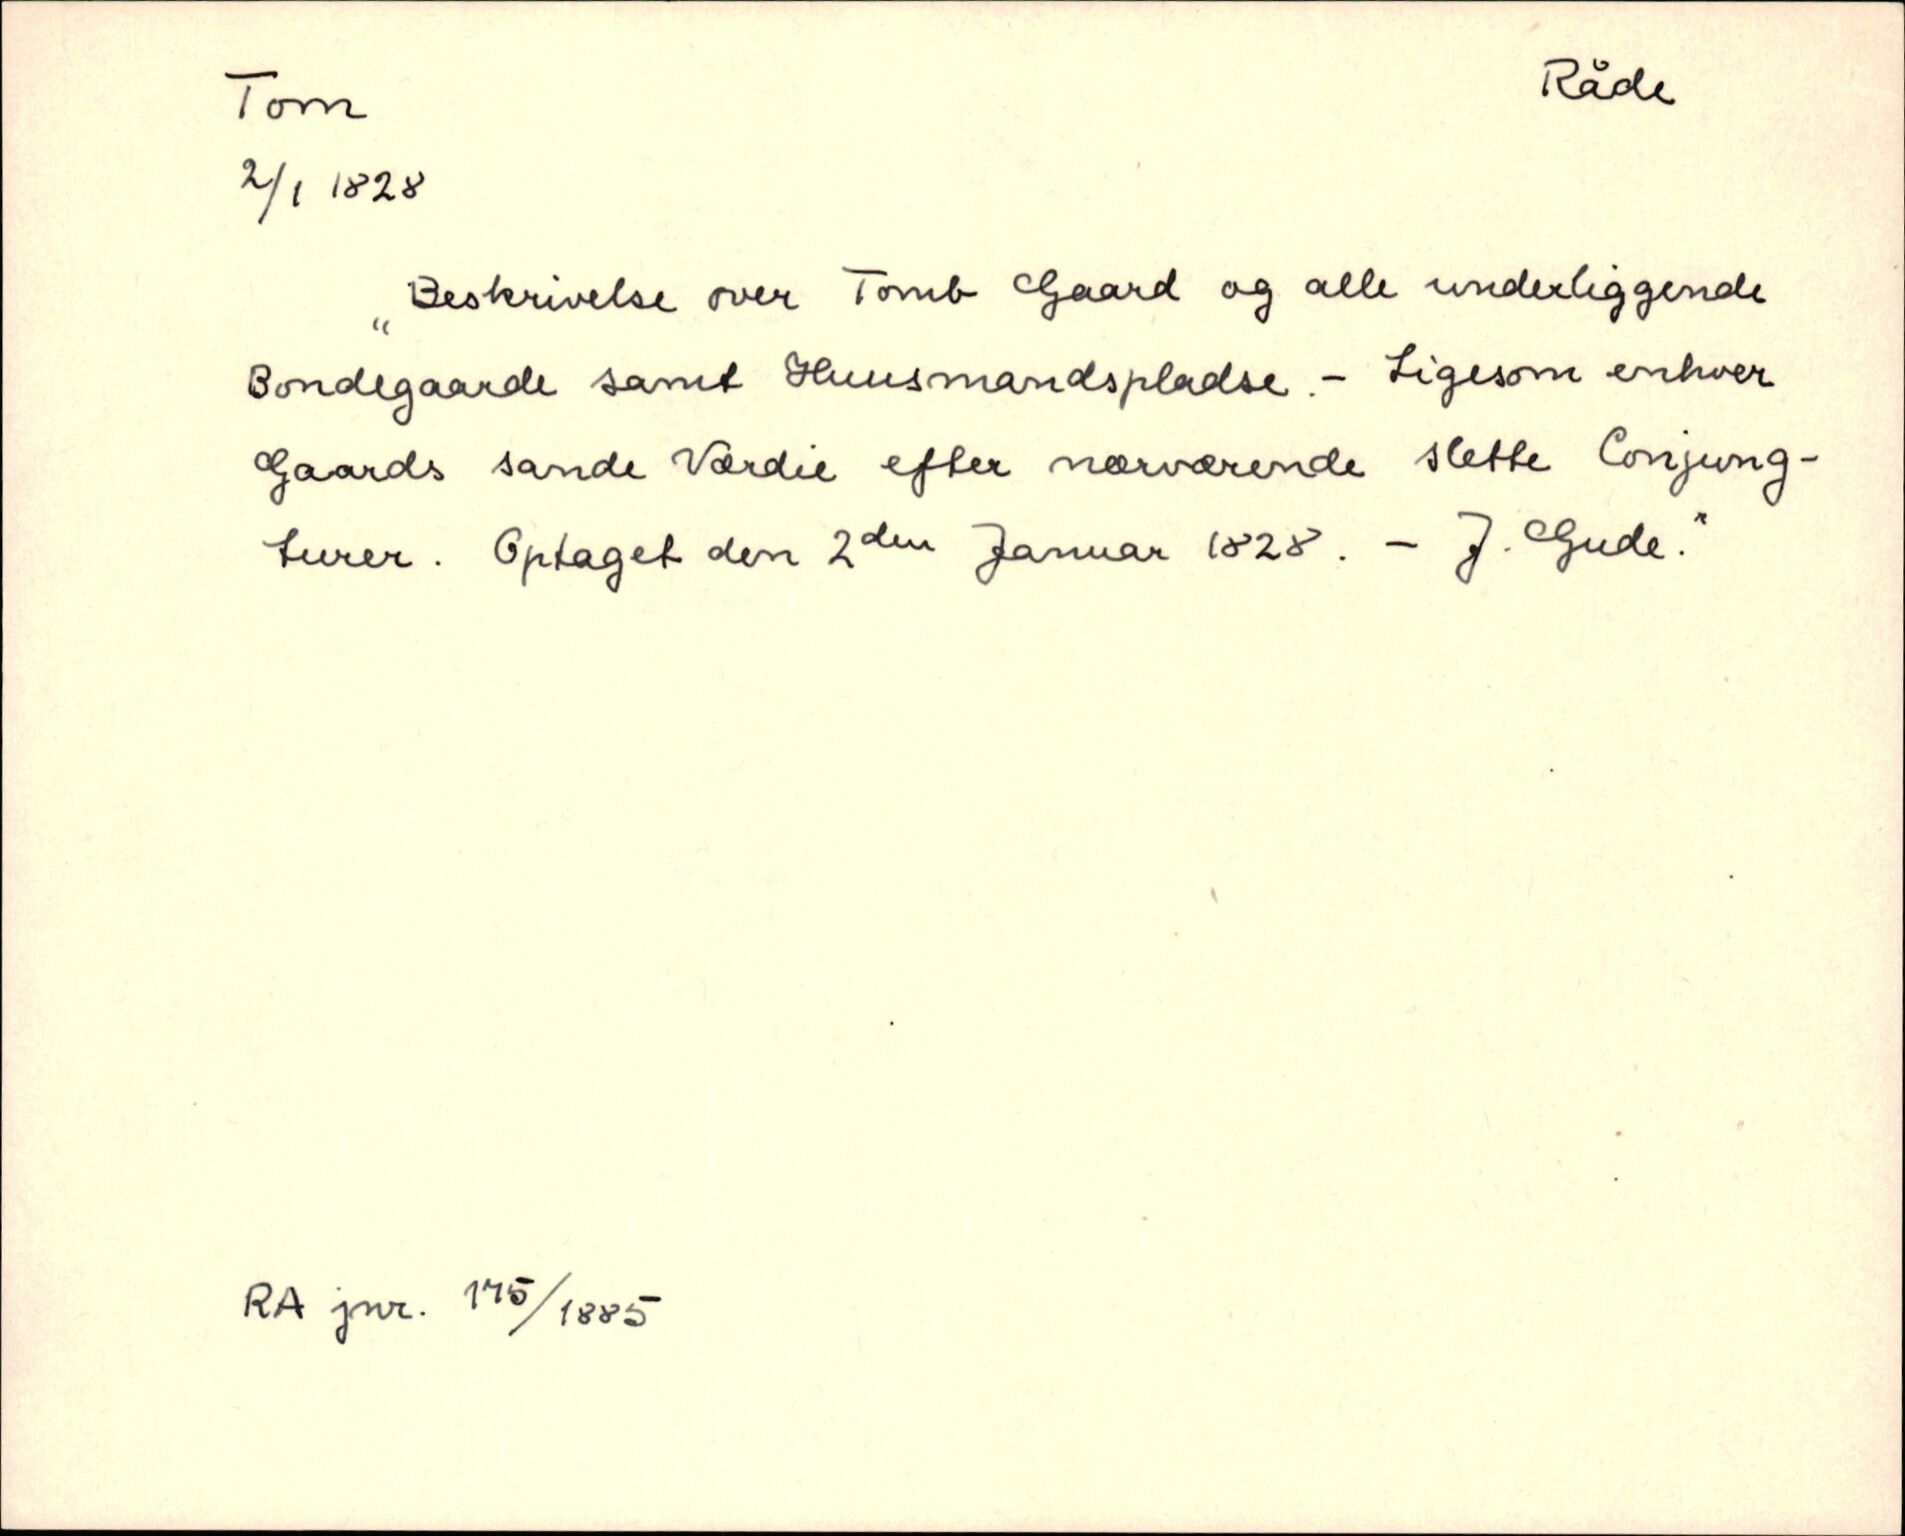 Tom
Råde
2/1 1828
„Beskrivelse over Tomb Gaard og alle underliggende
Bondegaarde samt Huusmandspladse. – Ligesom enhver
Gaards sande Værdie efter nærværende slette Conjung-
turer. Optaget den 2den Januar 1828. – J. Gude."
RA jnr. 175/1885